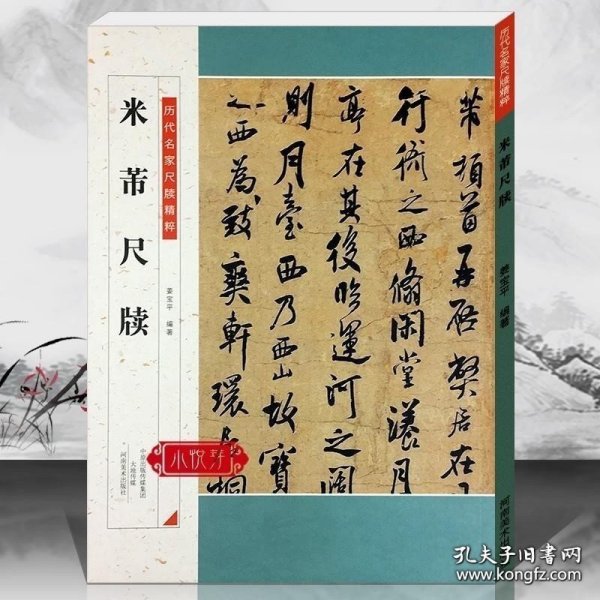 历代名家尺牍精粹
米芾尺牍
姜宝平 编著
中原出版传媒集团
大地传媒
河南美术出版社
芾頓首再启弊居在
行衙之西脩閑堂漾月
亭在其後臨運河之闊
則月臺西乃西山故寶
之西為致爽軒環
小悦芽
历代名家尺牍精粹
米芾尺牍
姜宝平 编著
河南美术出
孔夫子旧书网
www.kongfz.com